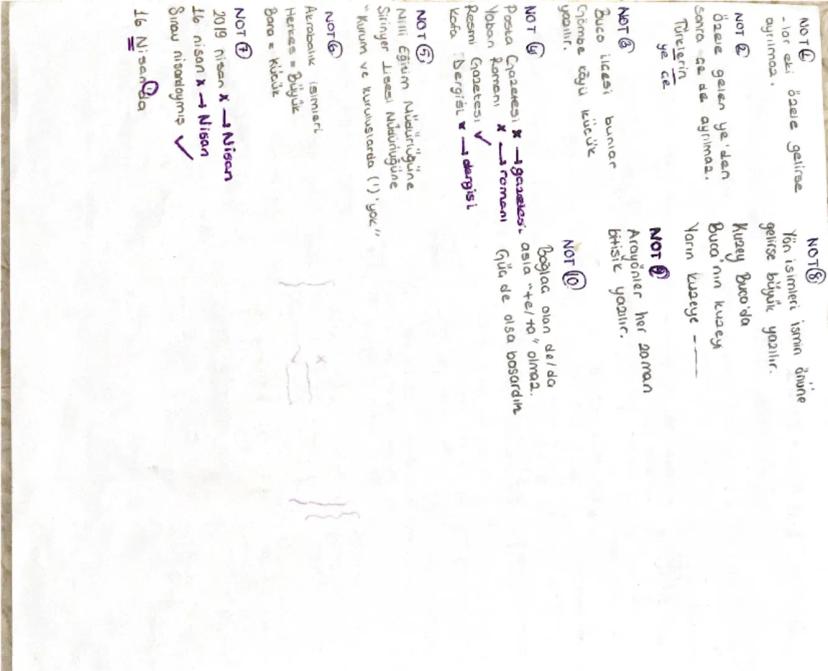 NOT 1
-lar eki özele gelirse
ayrılmaz.
NOT 2
özele gelen ye'den
sonra çe de ayrılmaz.
Türklerin
ye çe
NOT 3
Buca ilçesi bunlar
Gömbe köyü küçük
yazılır.
NOT 4
Posta Gazetesi x → gazetesi
Yaban Romanı x → romanı
Resmi Gazetesi ✓
Kafa Dergisi x → dergisi
NOT 5
Milli Eğitim Müdürlüğüne
Şirinyer Lisesi Müdürlüğüne
"Kurum ve kuruluşlarda (') yok"
NOT 6
Akrabalık isimleri
Herkes = Büyük
Bana = Küçük
NOT 7
2019 nisan x → Nisan
16 nisan x → Nisan
Sınav nisandaymış ✓
16 Nisan'da
NOT 8
Yön isimleri ismin önüne
gelirse büyük yazılır.
Kuzey Buca'da
Buca'nın kuzeyi
Yarın kuzeye -
NOT 9
Arayönler her zaman
bitişik yazılır.
NOT 10
Bağlaç olan de/da
asla "te/ta" olmaz.
Güç de olsa başardık